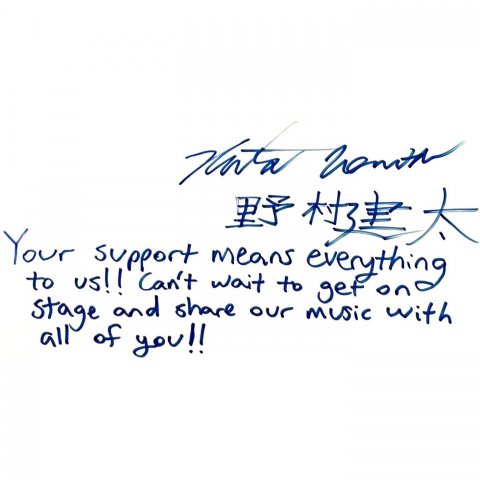 野村建太
Your support means everything
to us!! Can't wait to get on
stage and share our music with
all of you!!